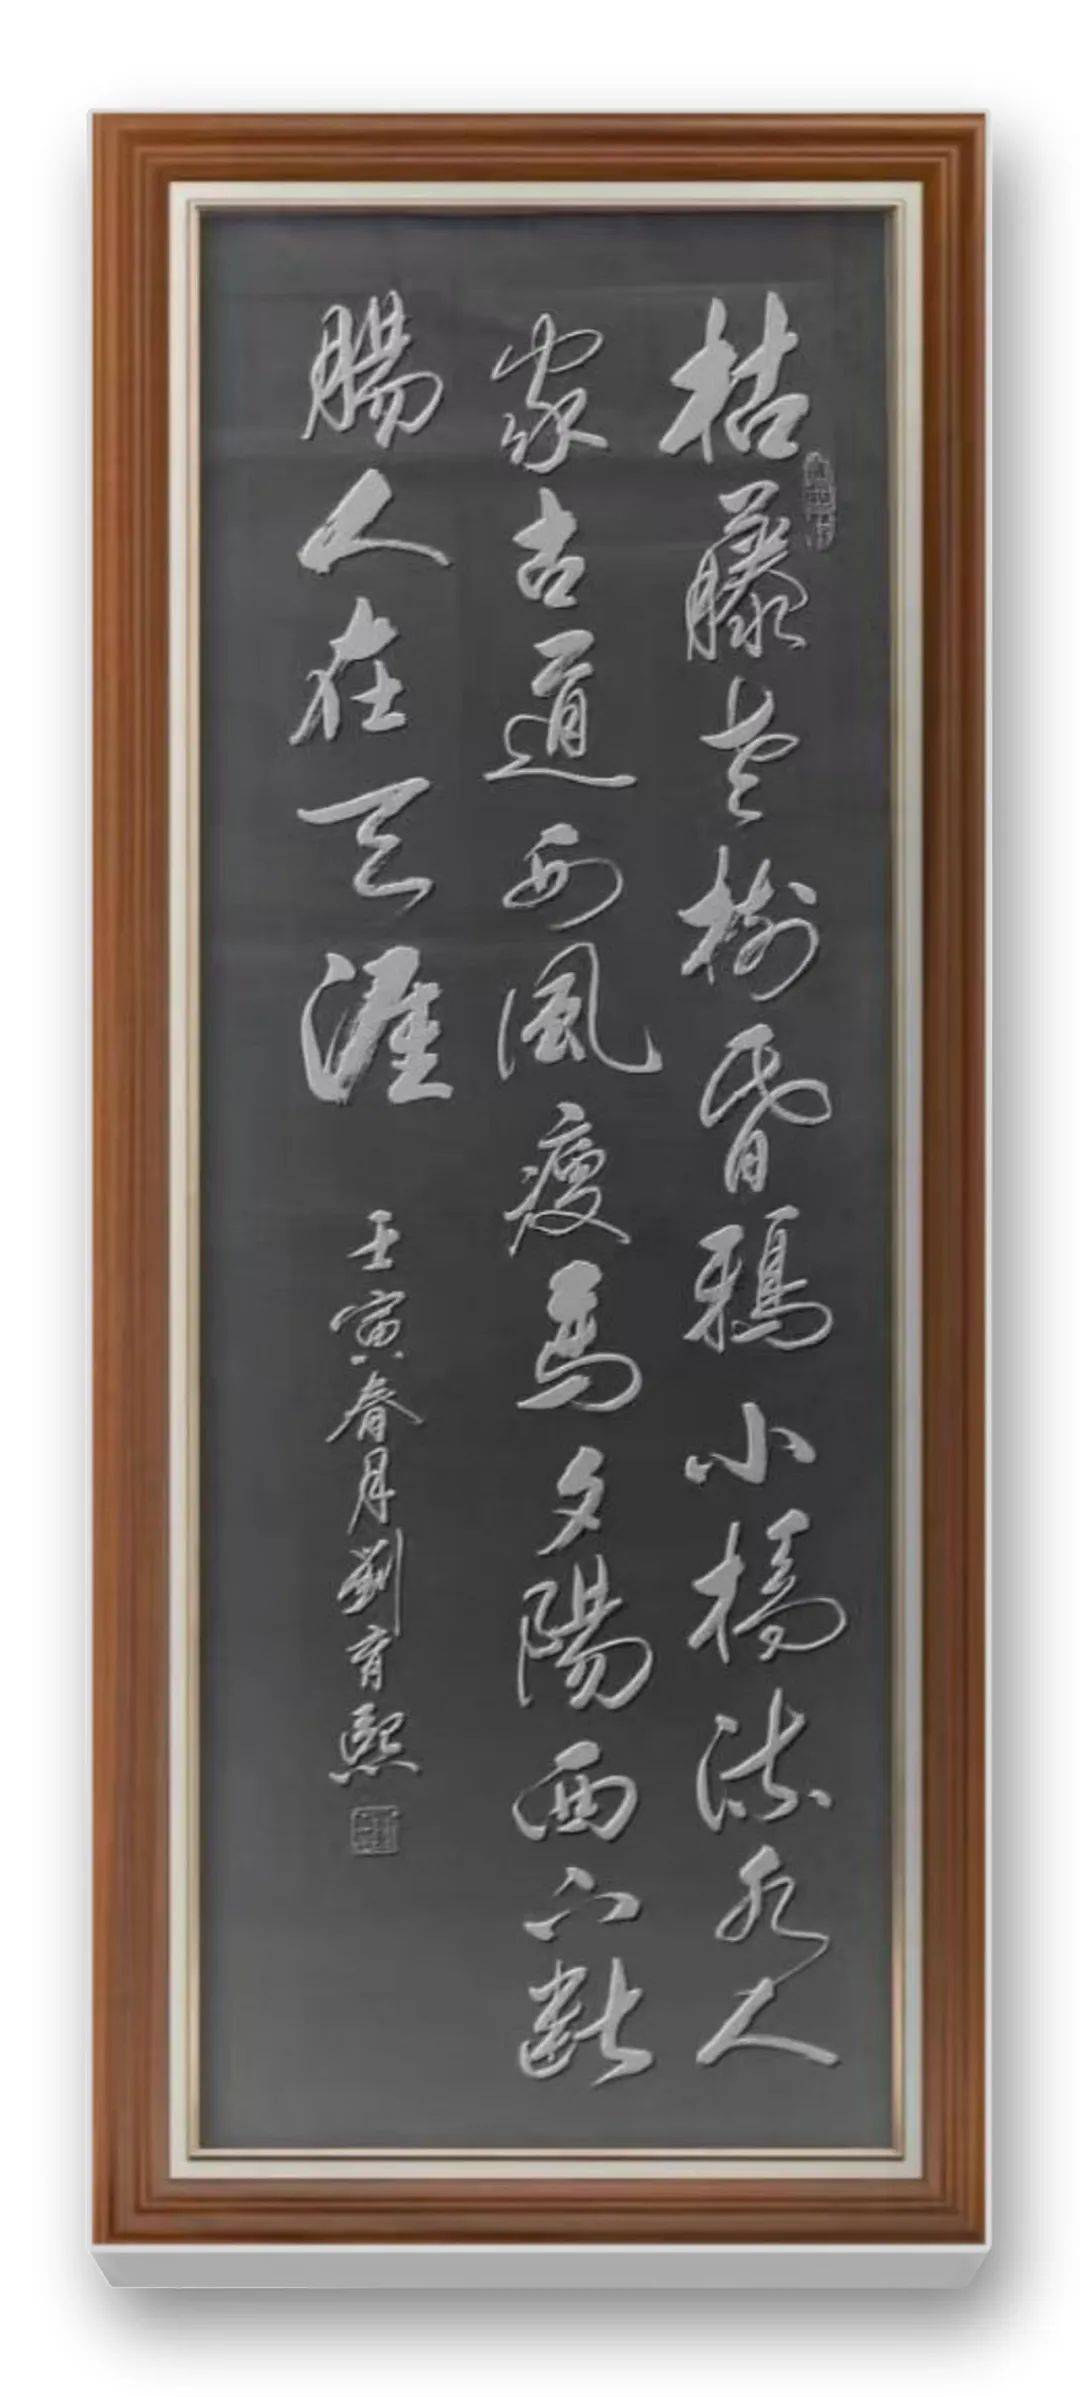 枯藤老樹昏鴉小橋流水人
家古道西風瘦馬夕陽西下斷
腸人在天涯
壬寅春月劉育熙